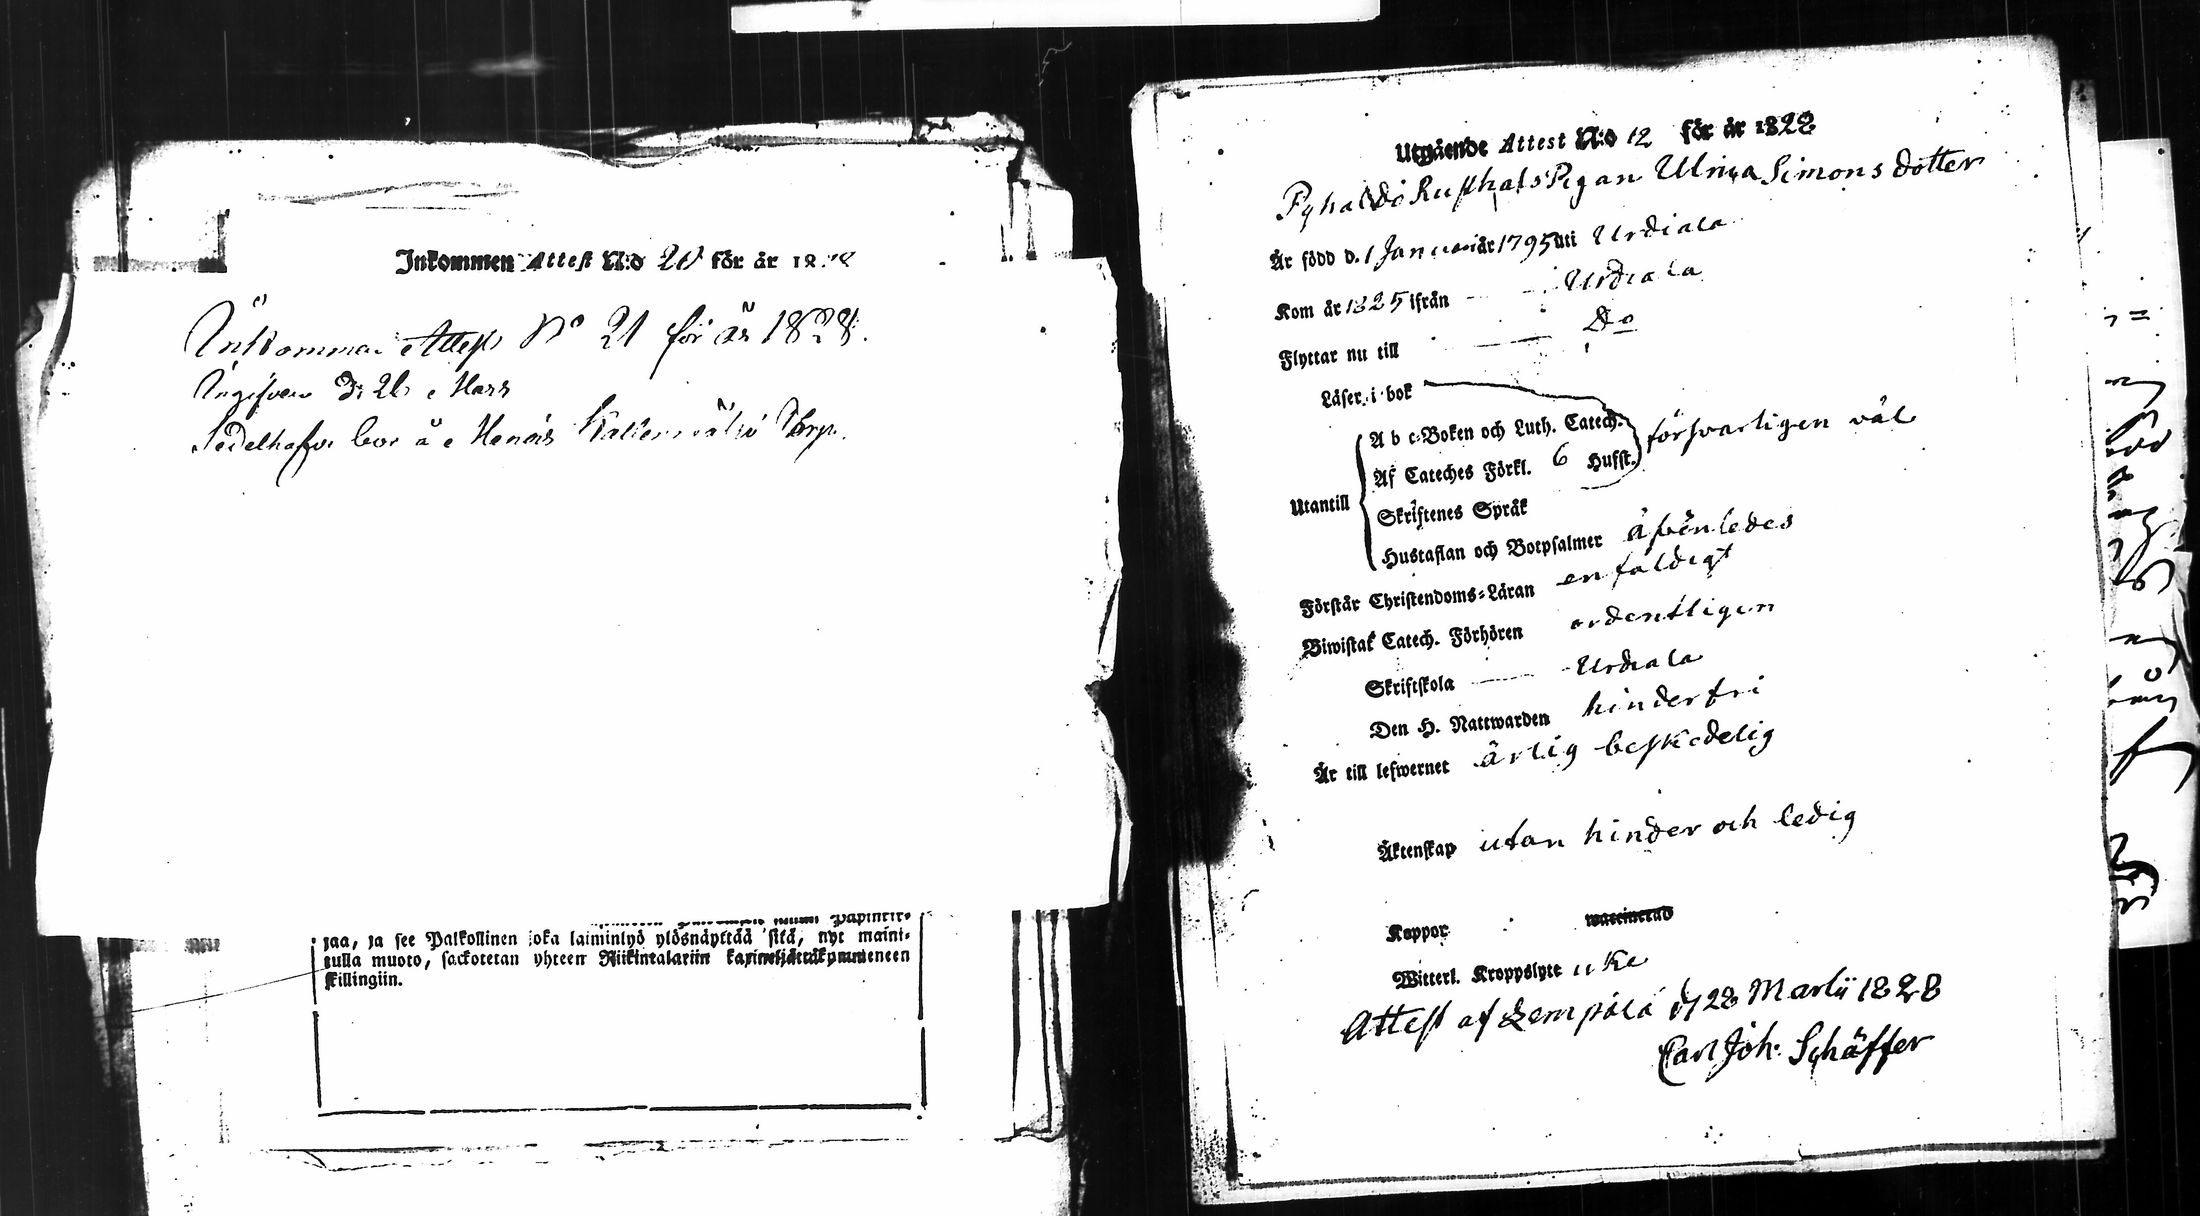 Inkommen Attest N:o 20 för år 18
Inkommen Attest No 21 för år 1828.
Ingifven d. 26 Mars
Sedelhafv. bor å Torp.
Papinter-
jaa, ja see Palkollinen joka laiminlyö ylösnäyttää sitä, nyt maini-
tulla muoto, sackotetan yhteen Riikintalariin
skillingiin.
Utgående Attest N:o 12 för år 1828
Rusthåls Pigan Ulrica Simons dotter
Är född d. 1 Januari år 1795 uti Urdiala
Kom år 1825 ifrån Urdiala
Flyttar nu till Do
Läser i bok
A b c-Boken och Luth. Catech.
försvarligen väl
Af Cateches Förkl. 6 Hufst.
Utantill
Skriftenes Språk
Hustaflan och Botpsalmer åfvenledes
Förstår Christendoms-Läran enfaldigt
Biwistat Catech. Förhören ordentligen
Skriftskola Urdiala
Den H. Nattwarden hinderfri
Är till lefwernet ärlig beskedelig
Äktenskap utan hinder och ledig
Koppor waccinerad
Witterl. Kroppslyte
Attest af Lempälä d 28 Martii 1828
Carl Joh. Schäffer